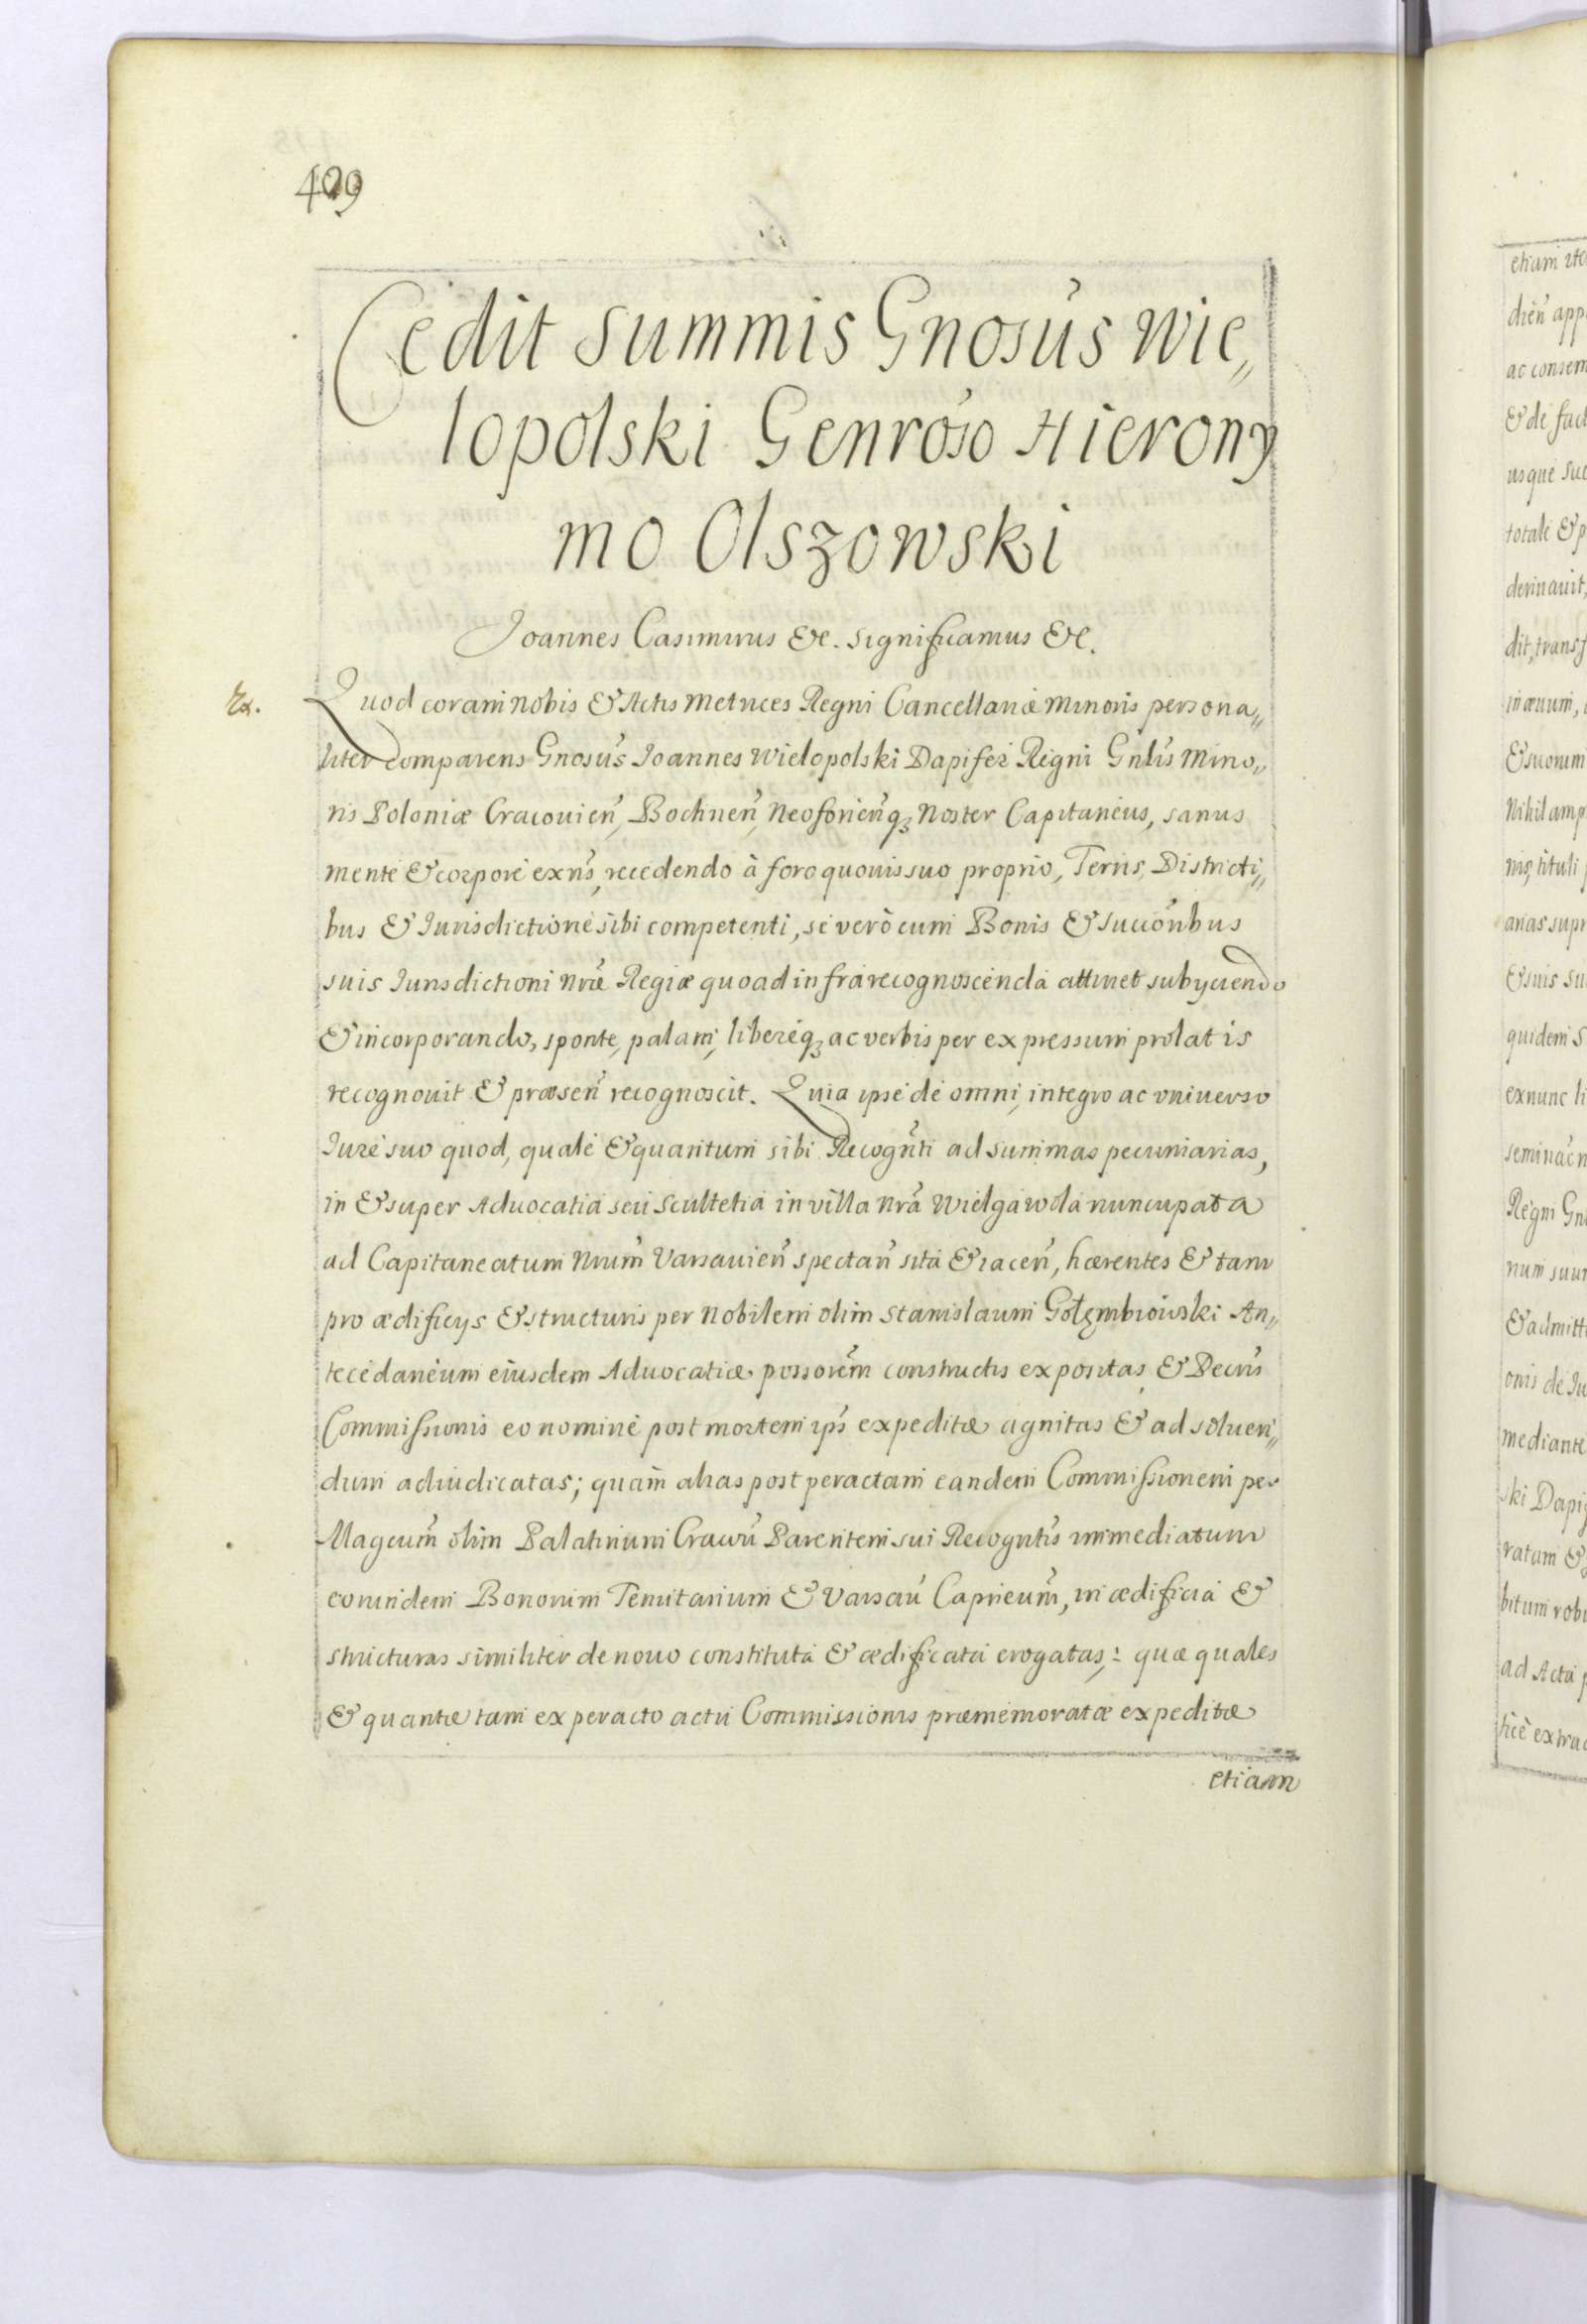 409
Cedit summis Gnosus Wie„
lopolski Genroso Hierony
mo Olszowski
Joannes Casimirus &c. significamus &c.
Ex.
Quod coram nobis & Actis Metrices Regni Cancellariæ Minoris persona„
liter comparens Gnosus Joannes Wielopolski Dapifer Regni Gnlis Mino„
ris Poloniæ Cracouien, Bochnen, Neoforienq3 Noster Capitaneus, sanus
mente & corpore exns, recedendo à foro quouis suo proprio, Terris, Districti„
bus & Jurisdictione sibi competenti, se verò cum Bonis & succonbus
suis Jurisdictioni nræ Regiæ quoad infrà recognoscenda attinet subyciendo
& incorporando, sponte, palam, libereq3 ac verbis per expressum prolatis
recognouit & præsen recognoscit. Quia ipse de omni, integro ac vniuerso
Jure suo quod, quale & quantum sibi Recognti ad summas pecuniarias,
in & super Aduocatia seu Scultetia in villa nra Wielgawola nuncupata
ad Capitaneatum Nrum Varsauien spectan sita & iacen, hærentes & tam
pro ædificys & structuris per Nobilem olim Stanislaum Gołęmbiowski An„
tecedaneum eiusdem Aduocatiæ possorem constructis expositas & Decris
Commissionis eo nomine post mortem ips expeditæ agnitas & ad soluen„
dum adiudicatas; quam alias post peractam eandem Commissionem per
Magcum olim Palatinum Cracou Parentem sui Recogntis immediatum
eorundem Bonorum Tenutarium & Varsau Capneum, in ædificia &
structuras similiter de nouo constituta & ædificata erogatas,: quæ quales
& quantæ tam ex peracto actu Commissionis præmemoratæ expeditæ
etiam